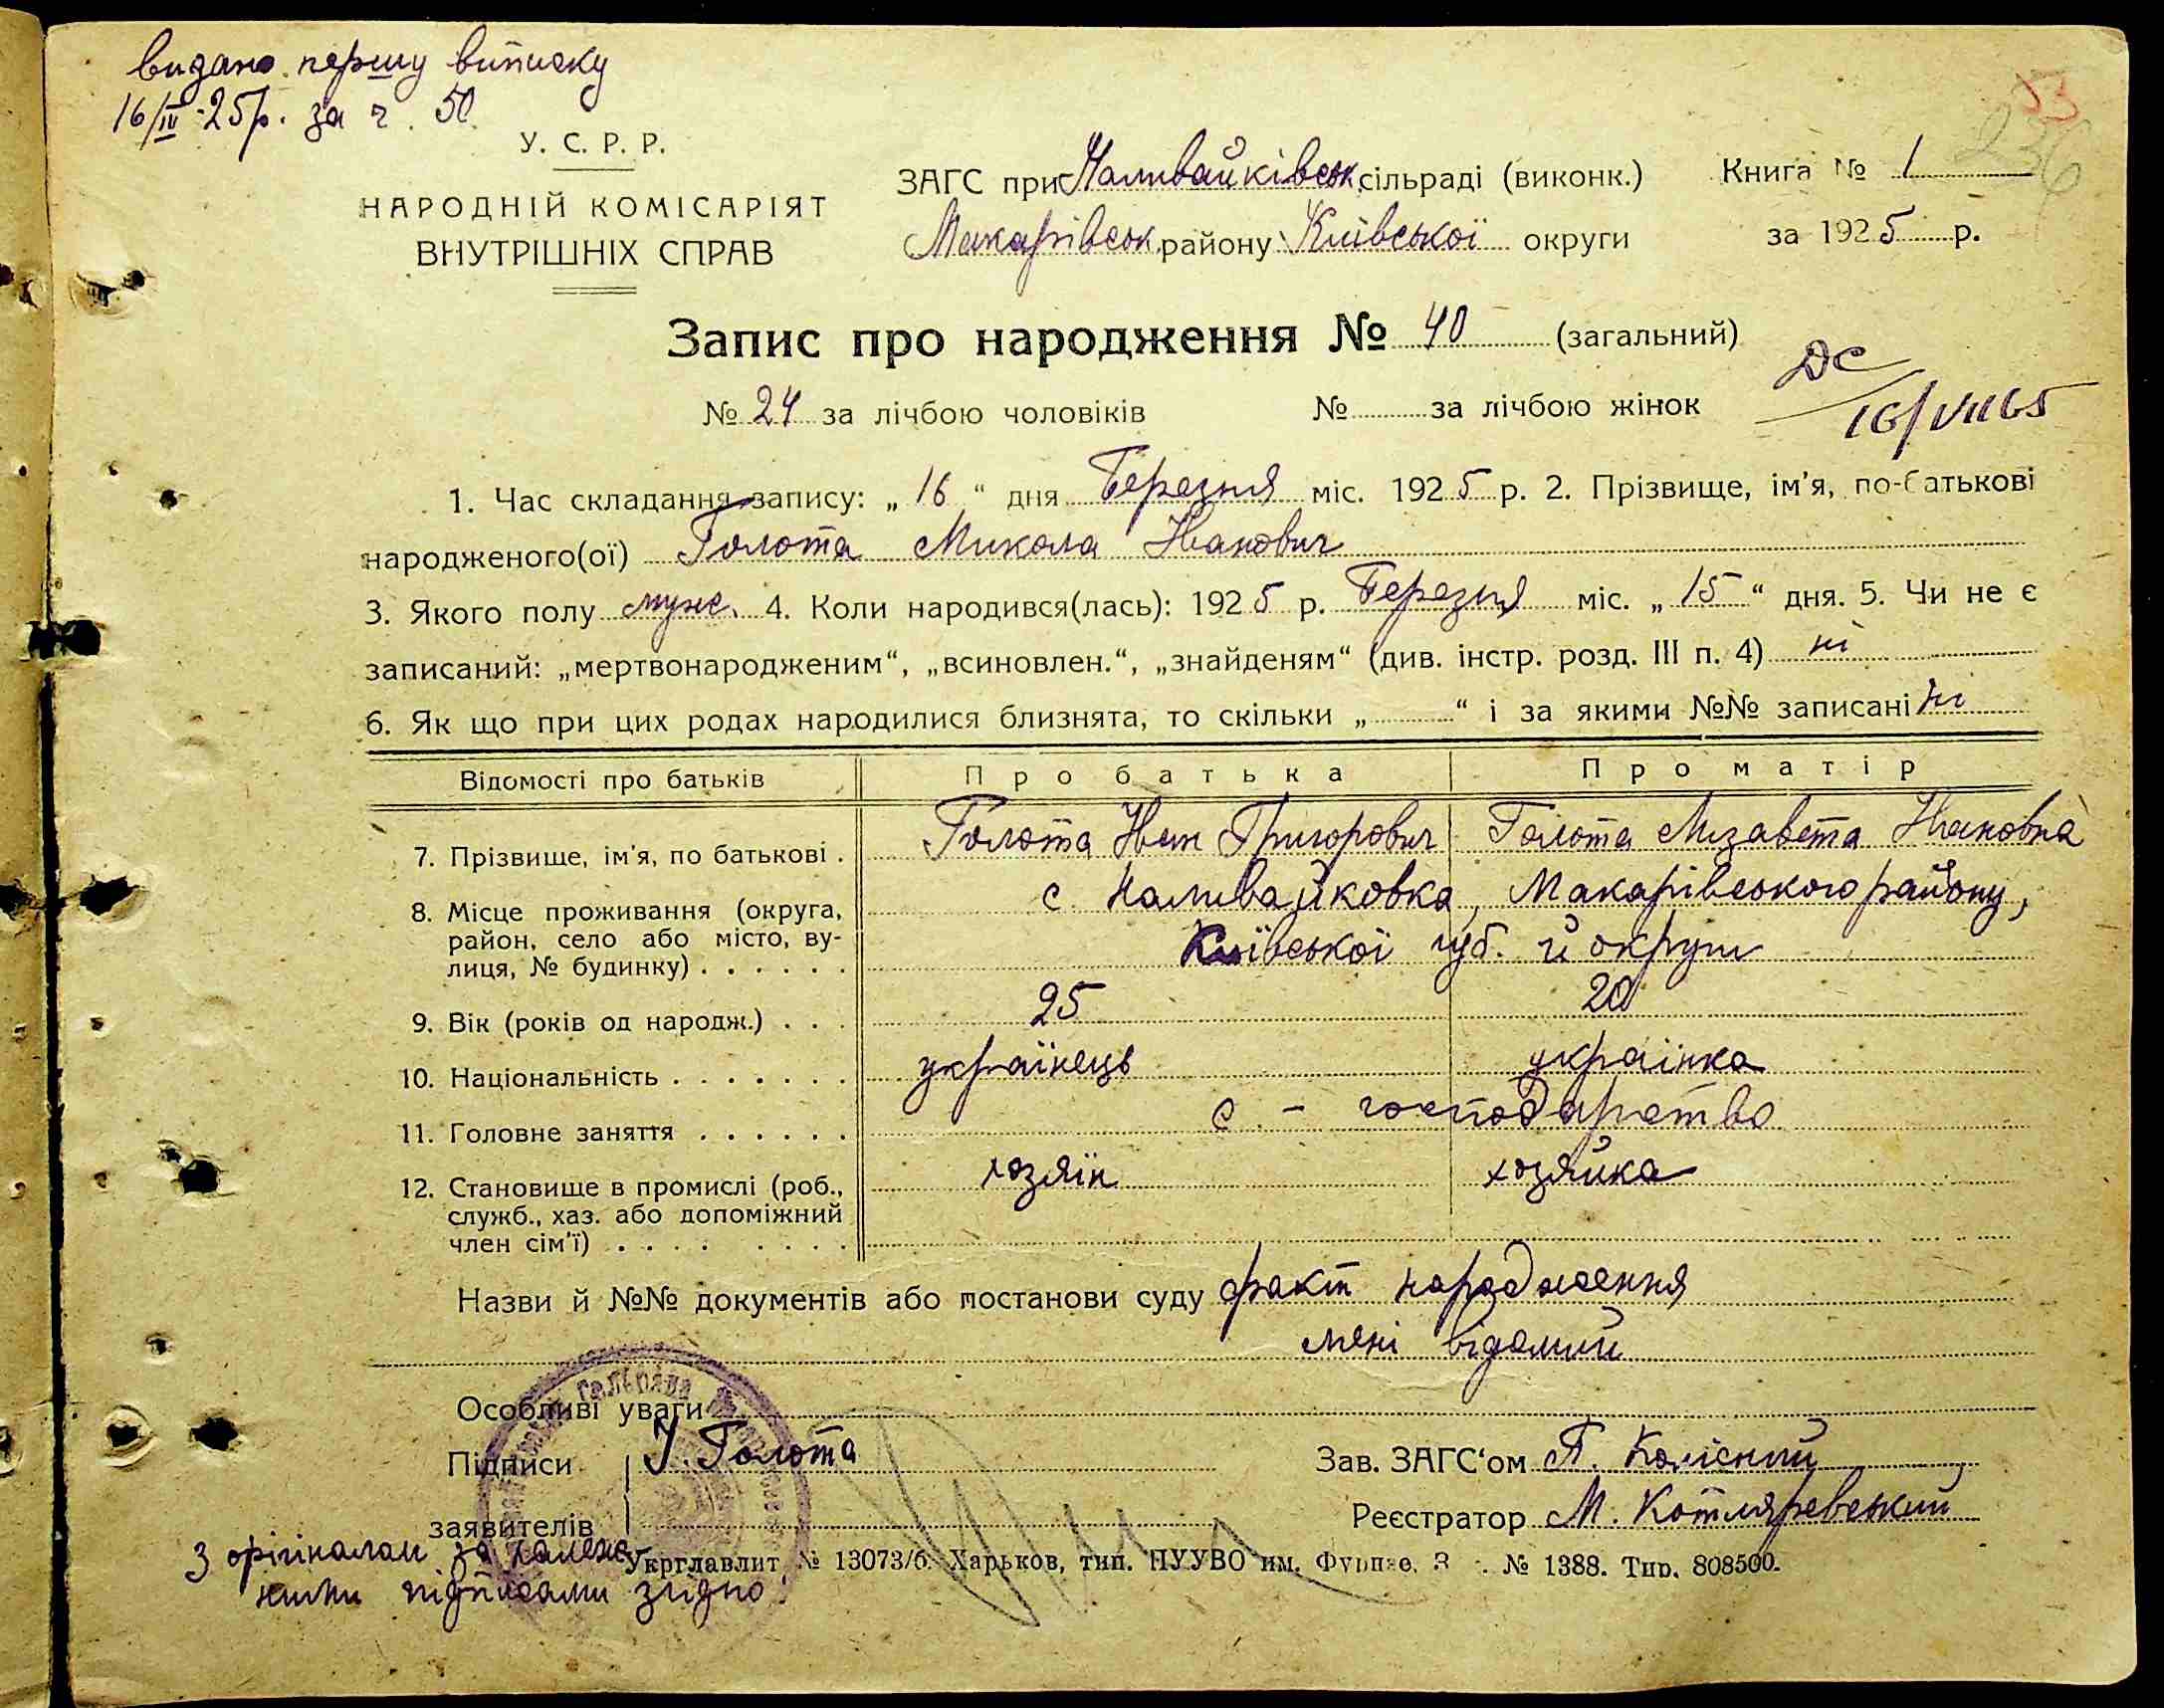 видано першу виписку
16/IV-25р. за ч. 50.
53
236
У. С. Р. Р.
НАРОДНІЙ КОМІСАРІЯТ
ВНУТРІШНІХ СПРАВ
ЗАГС при Наливайківськ. сільраді (виконк.) Книга № 1
Макарівськ. району Київської округи за 1925 р.
Запис про народження № 40 (загальний)
№ 24 за лічбою чоловіків № за лічбою жінок
16/VII65
1. Час складання запису: „16“ дня Березня міс. 1925 р. 2. Прізвище, ім'я, по-батькові
народженого(ої) Голота Микола Іванович
3. Якого полу муже. 4. Коли народився(лась): 1925 р. Березня міс. „15“ дня. 5. Чи не є
записаний: „мертвонародженим“, „всиновлен.“, „знайденям“ (див. інстр. розд. III п. 4) ні
6. Як що при цих родах народилися близнята, то скільки „ “ і за якими №№ записані ні
Відомості про батьків Про батька Про матір
7. Прізвище, ім'я, по батькові . Голота Іван Григорович Голота Лизавета Івановна
8. Місце проживання (округа, район, село або місто, вулиця, № будинку) . . . . . . с. Наливайковка, Макарівського району,
Київської губ. й округи
9. Вік (років од народж.) . . . 25 20
10. Національність . . . . . . . українець українка
11. Головне заняття . . . . . . с - господарство
12. Становище в промислі (роб., служб., хаз. або допоміжний член сім'ї) . . . . . . . . хозяїн хозяйка
Назви й №№ документів або постанови суду факт народження
мені відомий
Особливі уваги
Підписи І. Голота Зав. ЗАГС'ом П. Колісний
заявителів Реєстратор М. Котляревський
З орігіналом за належ
ними підписами згідно.
Укрглавлит № 13073/б. Харьков, тип. ПУУВО им. Фрунзе. З . № 1388. Тир. 808500.